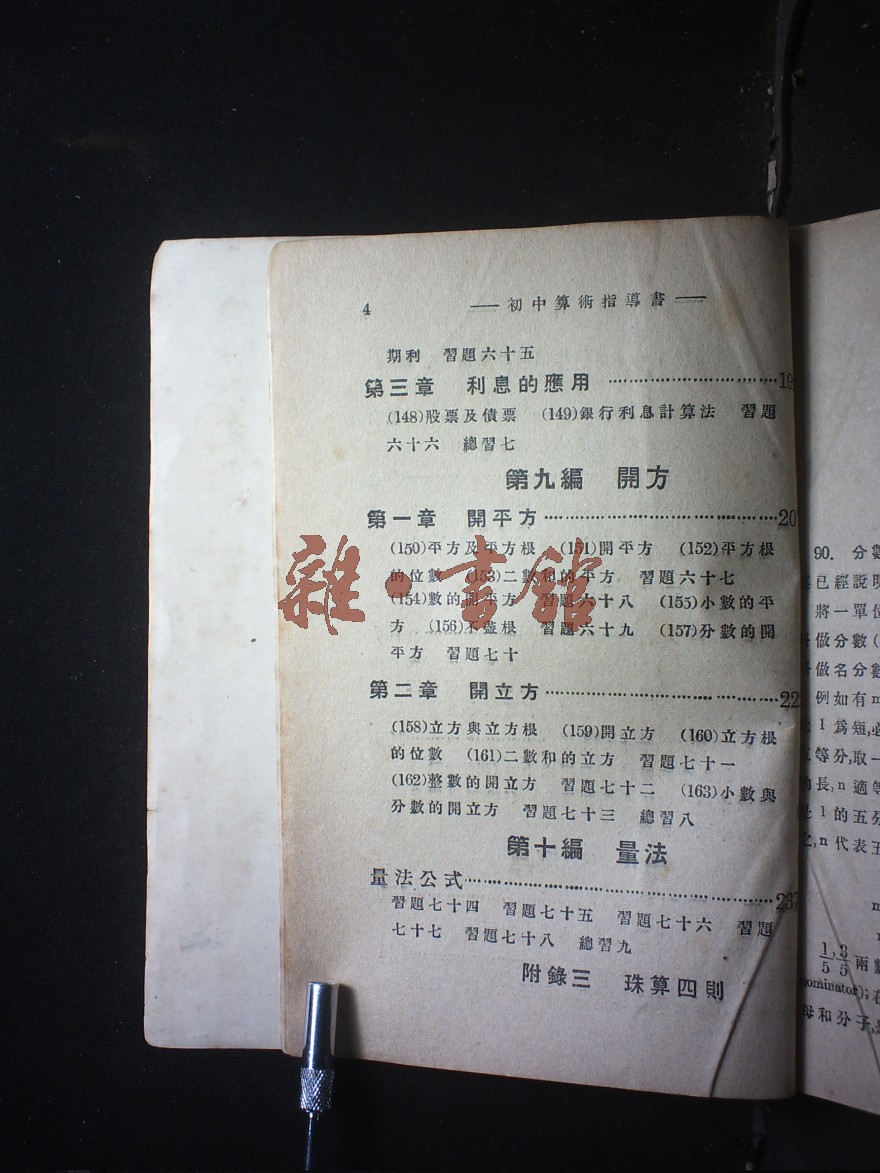 4 ——初中算術指導書——
期利 習題六十五
第三章 利息的應用 ………………………… 19
(148)股票及債票 (149)銀行利息計算法 習題
六十六 總習七
第九編 開方
第一章 開平方 ………………………… 20
(150)平方及平方根 (151)開平方 (152)平方根
的位數 (153)二數和的平方 習題六十七
(154)數的開平方 習題六十八 (155)小數的平
方 (156)不盡根 習題六十九 (157)分數的開
平方 習題七十
第二章 開立方 ………………………… 22
(158)立方與立方根 (159)開立方 (160)立方根
的位數 (161)二數和的立方 習題七十一
(162)整數的開立方 習題七十二 (163)小數與
分數的開立方 習題七十三 總習八
第十編 量法
量法公式 ………………………… 237
習題七十四 習題七十五 習題七十六 習題
七十七 習題七十八 總習九
附錄三 珠算四則
雜·書館
90. 分數
已經說明
將一單位
做分數(
做名分數
例如有m
1爲短,必
等分,取一
長,n適等
1的五分
,n代表五
m
1/5, 3/5 兩數
nominator);在
母和分子,是